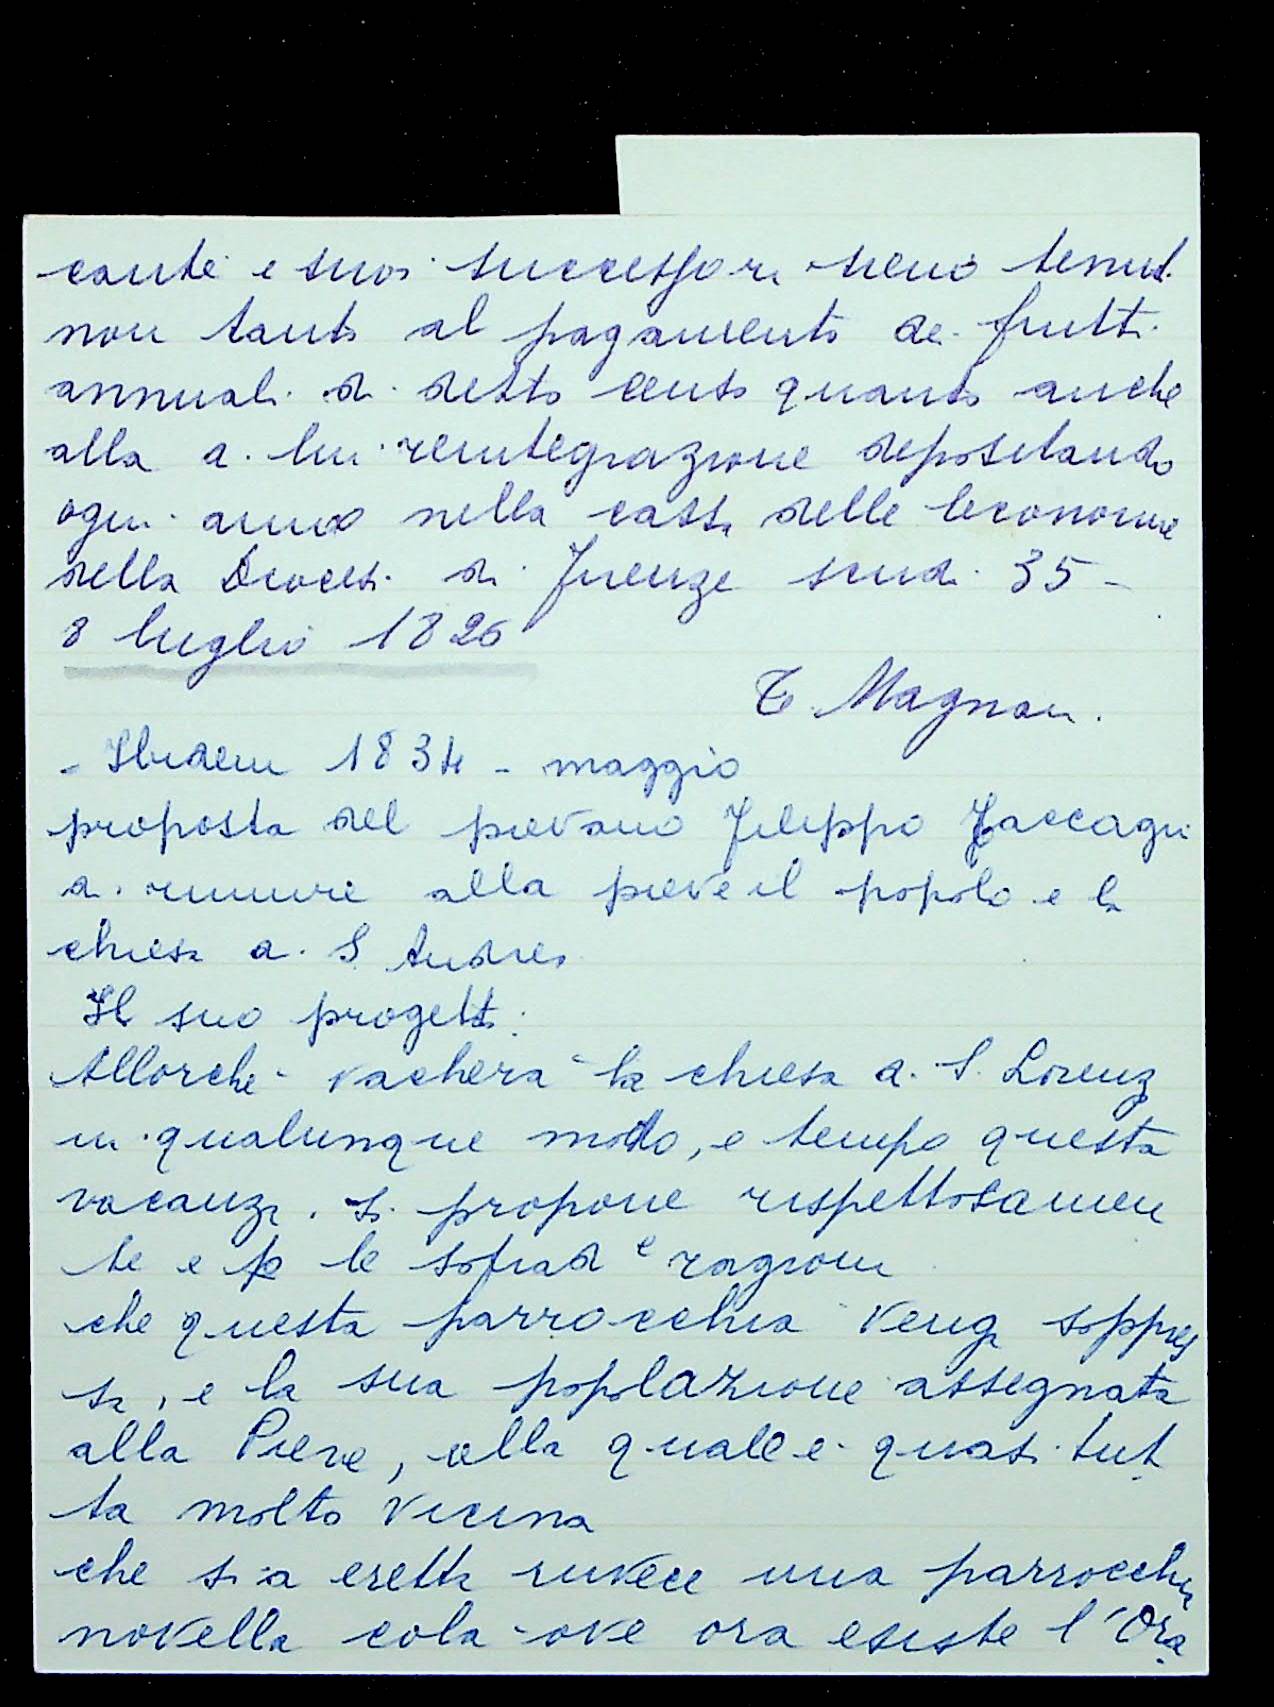 cante e suoi successori sieno tenuti
non tanto al pagamento dei frutti
annuali di detto censo quanto anche
alla di lui reintegrazione depositando
ogni anno nella cassa delle Economie
della Diocesi di Firenze scudi 35 -
8 luglio 1826
T. Magnani.
- Ibidem 1834 - maggio
proposta del pievano Filippo Zaccagni
di riunire alla pieve il popolo e la
chiesa di S Andrea
Il suo progetto:
Allorchè vacherà la chiesa di S. Lorenz
in qualunque modo, e tempo questa
vacanza, si propone rispettosamen
te e p le soprad e ragioni
che questa parrocchia venga soppres
sa, e la sua popolazione assegnata
alla Pieve, alla quale è quasi tut
ta molto vicina
che sia eretta invece una parrocchia
novella colà ove ora esiste l'Ora